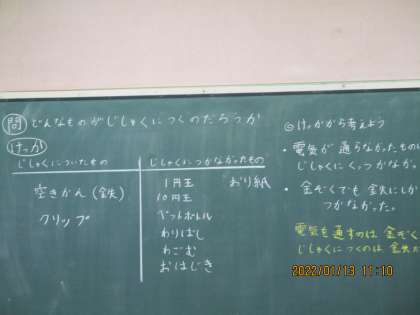 問 どんなものがじしゃくにつくのだろうか
けっか
じしゃくについたもの
空きかん(鉄)
クリップ
じしゃくにつかなかったもの
1円玉 おり紙
10円玉
ペットボトル
わりばし
わごむ
おはじき
◎けっかから考えよう
・電気が通らなかったもの
じしゃくにくっつかなかっ
・金ぞくでも鉄にしか
つかなかった。
電気を通すのは金ぞく
じしゃくにつくのは鉄
2022/01/13 11:10